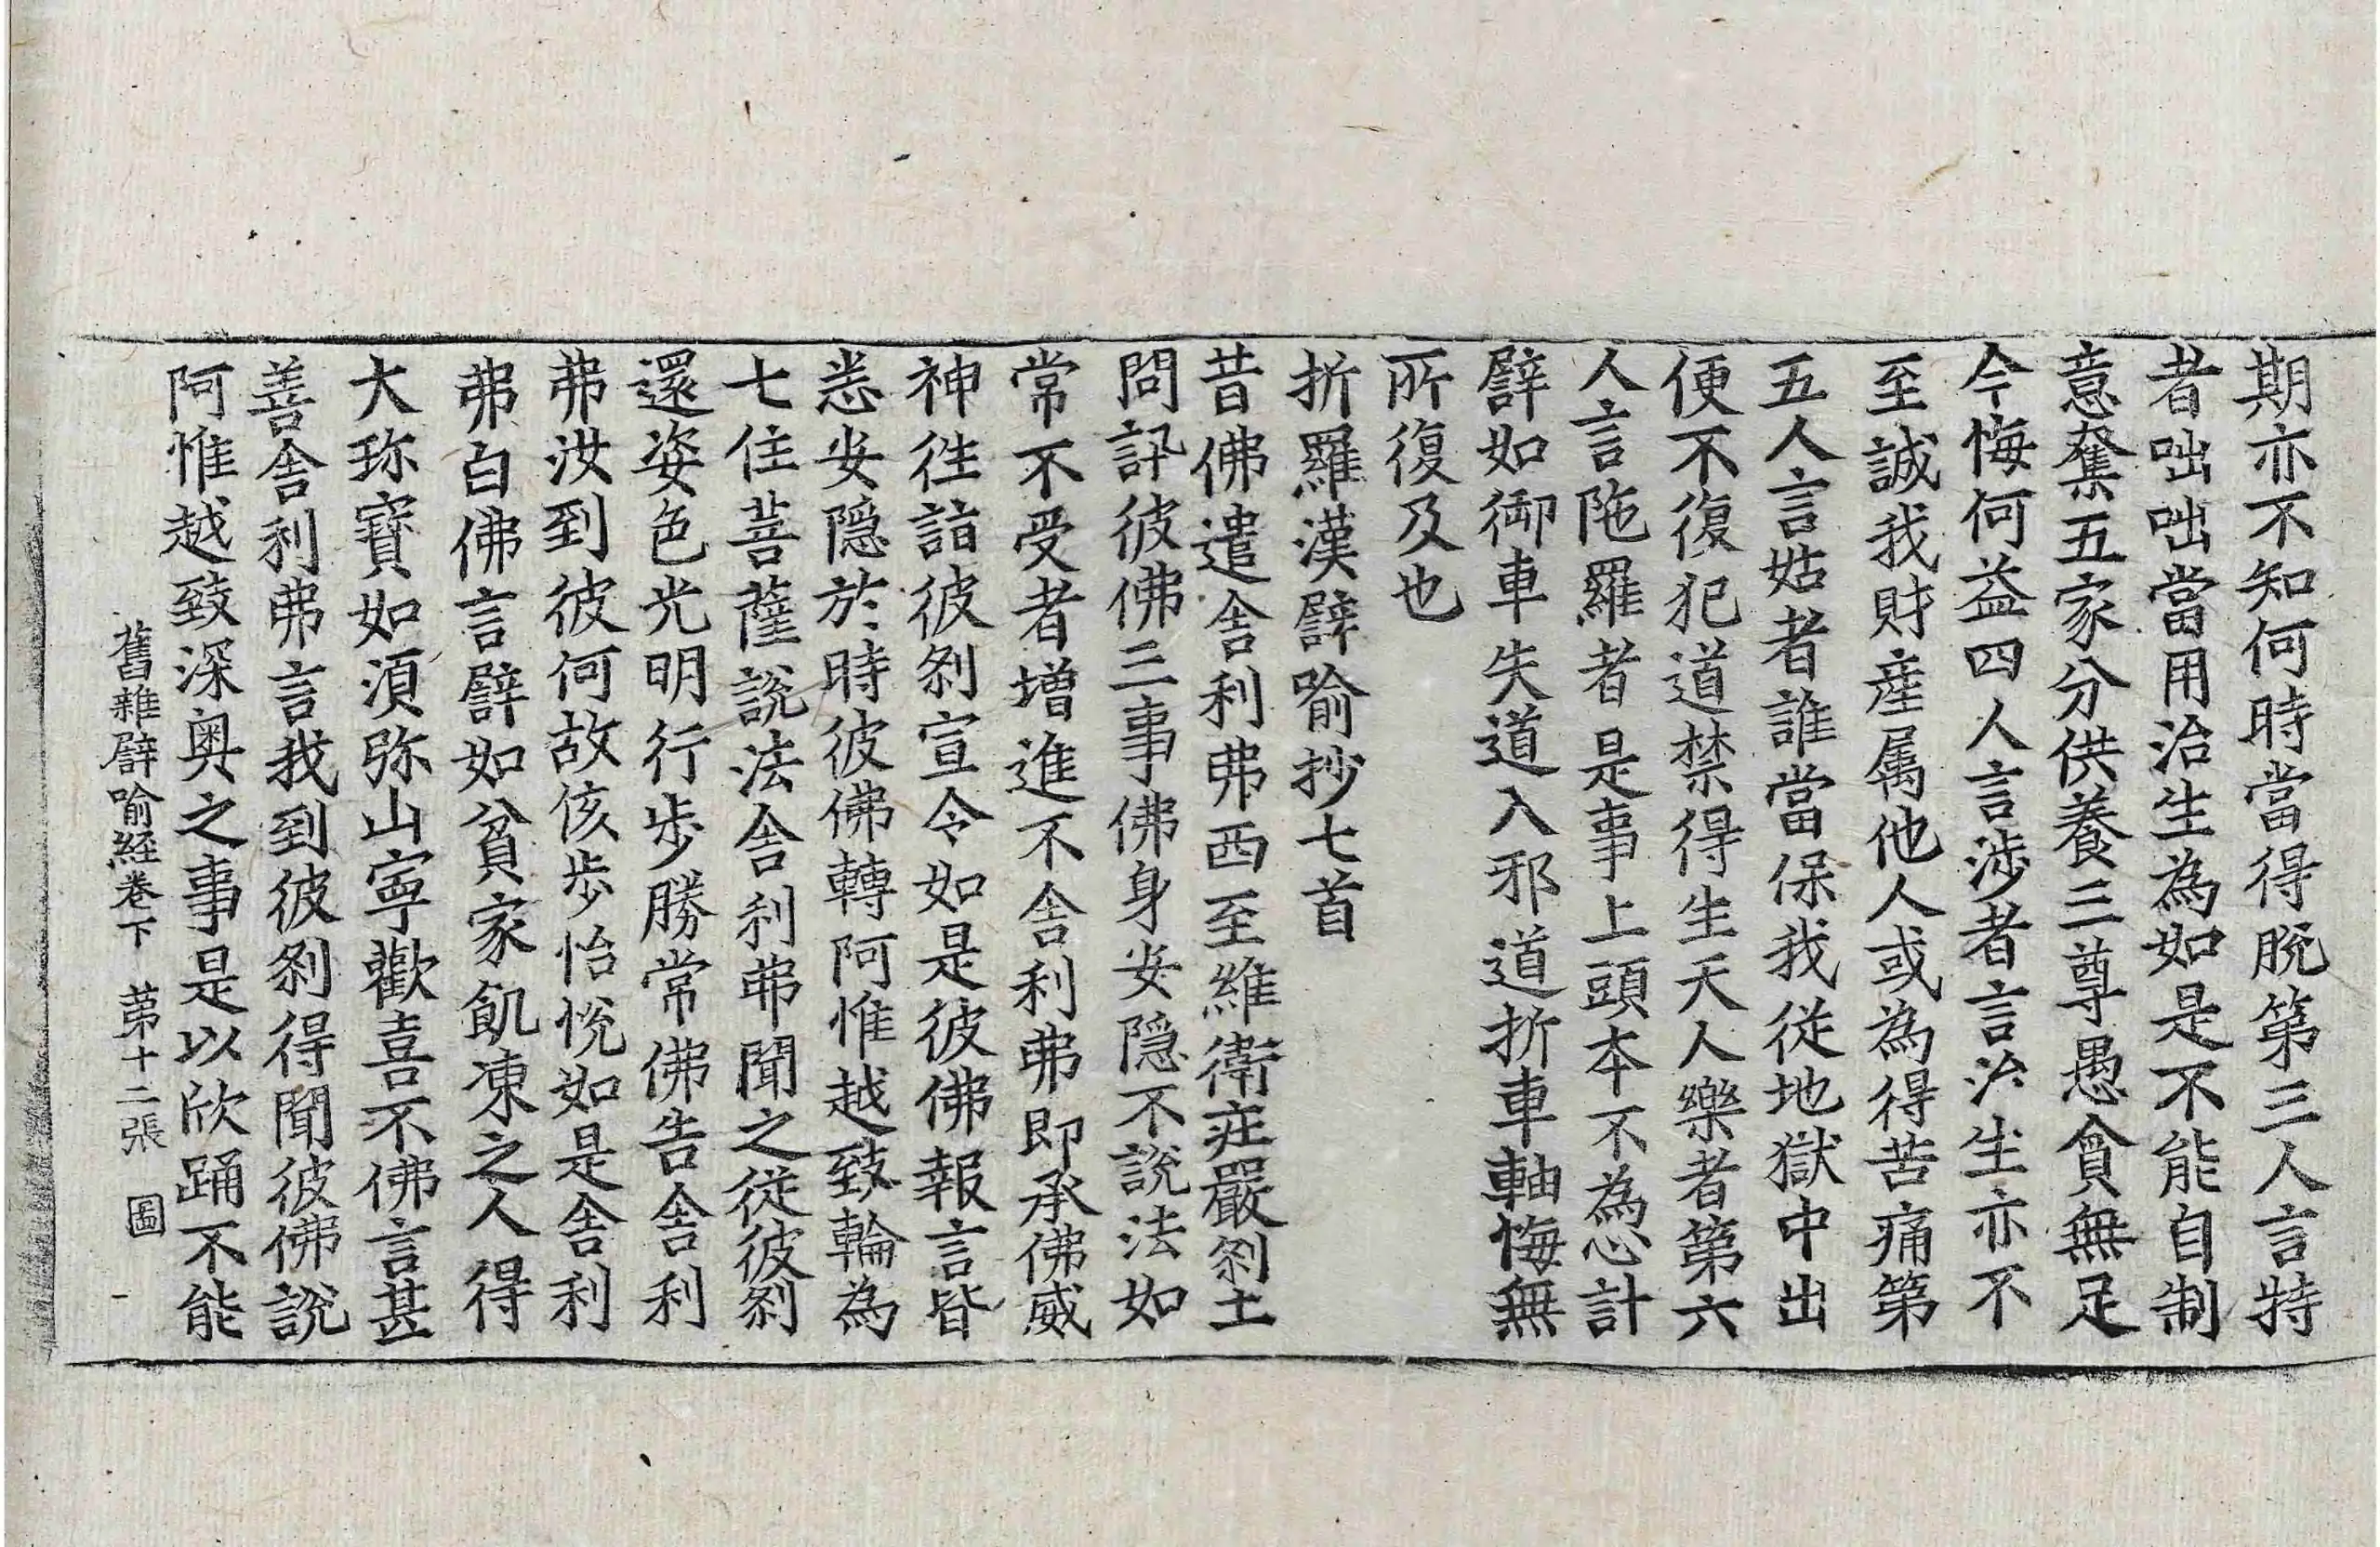 期亦不知何時當得脫第三人言特
者咄咄當用治生為如是不能自制
意奪五家分供養三尊愚貪無足
今悔何益四人言涉者言治生亦不
至誠我財產属他人或為得苦痛第
五人言姑者誰當保我從地獄中出
便不復犯道禁得生天人樂者第六
人言陁羅者是事上頭本不為心計
譬如御車失道入邪道折車軸悔無
所復及也
折羅漢譬喻抄七首
昔佛遣舍利弗西至維衛莊嚴刹土
問訊彼佛三事佛身安隠不說法如
常不受者增進不舍利弗即承佛威
神往詣彼刹宣令如是彼佛報言皆
悉安隠於時彼佛轉阿惟越致輪為
七住菩薩說法舍利弗聞之從彼刹
還姿色光明行步勝常佛告舍利
弗汝到彼何故侅步怡悅如是舍利
弗白佛言譬如貧家飢凍之人得
大珎寶如須弥山寧歡喜不佛言甚
善舍利弗言我到彼刹得聞彼佛說
阿惟越致深奥之事是以欣踊不能
舊雜譬喻経卷下　苐十二張　圖